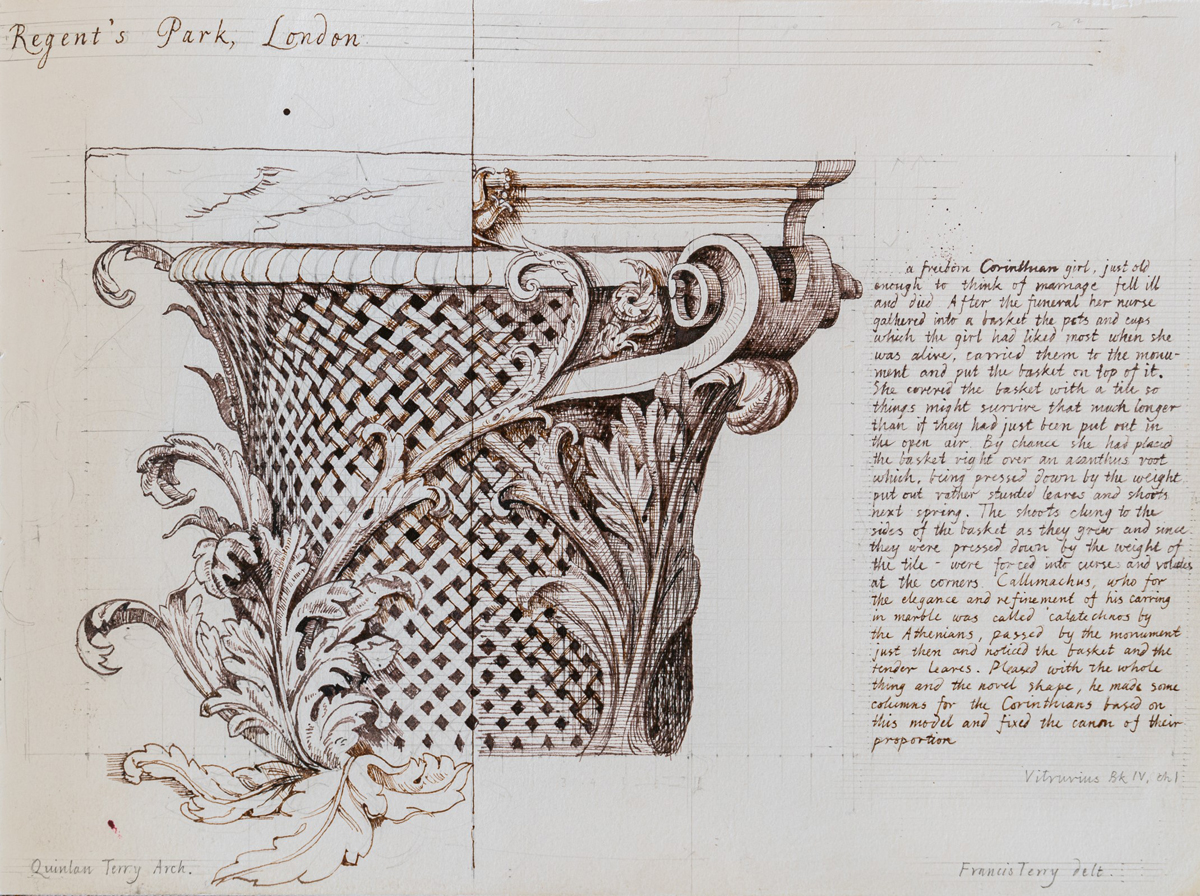 Regent's Park, London
a freeborn Corinthian girl, just old
enough to think of marriage fell ill
and died After the funeral her nurse
gathered into a basket the pots and cups
which the girl had liked most when she
was alive, carried them to the monu-
ment and put the basket on top of it.
She covered the basket with a tile so
things might survive that much longer
than if they had just been put out in
the open air. By chance she had placed
the basket right over an acanthus root
which, being pressed down by the weight
put out rather stunted leaves and shoots
next spring. The shoots clung to the
sides of the basket as they grew and since
they were pressed down by the weight of
the tile - were forced into curves and volutes
at the corners. Callimachus, who for
the elegance and refinement of his carving
in marble was called 'catatechnos by
the Athenians, passed by the monument
just then and noticed the basket and the
tender leaves. Pleased with the whole
thing and the novel shape, he made some
columns for the Corinthians based on
this model and fixed the canon of their
proportion
Vitruvius Bk IV, ch I
Quinlan Terry Arch.
Francis Terry delt.